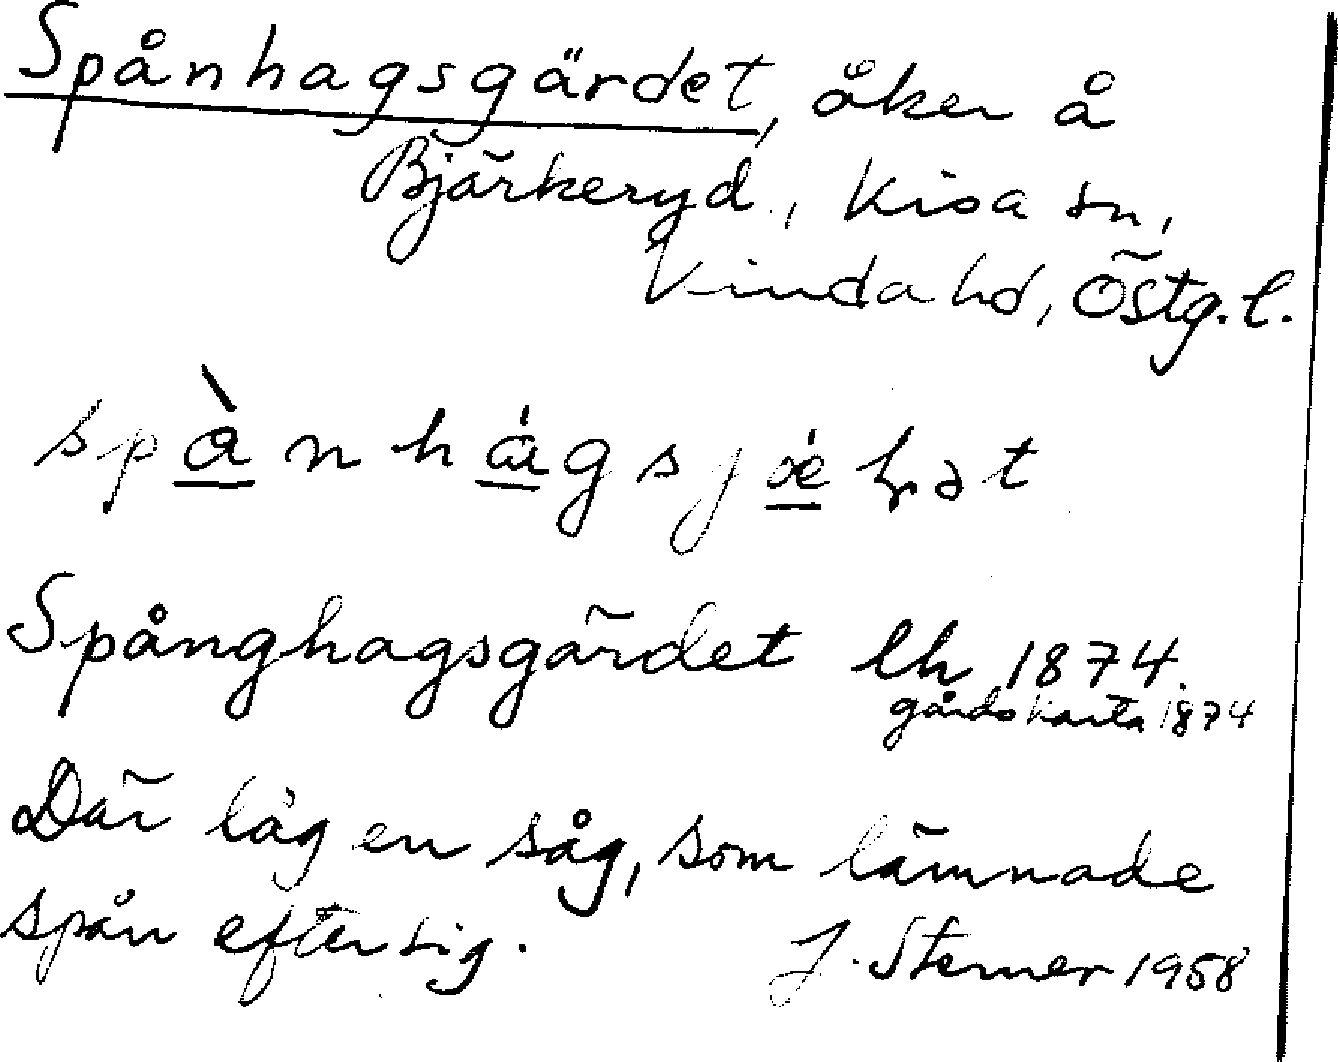 Spånhagsgärdet, åker å
Bjärkeryd, Kisa sn,
Kinda hd, Östg. l.
Spånghagsgärdet lh 1874.
gårdskarta 1874
Där låg en såg, som lämnade
spån efter sig.
J. Sterner 1958